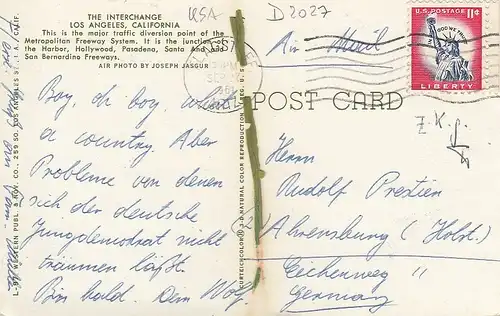 THE INTERCHANGE
LOS ANGELES, CALIFORNIA
This is the major traffic diversion point of the
Metropolitan Freeway System. It is the junction of
the Harbor, Hollywood, Pasadena, Santa Ana and
San Bernardino Freeways.
AIR PHOTO BY JOSEPH JASGUR
USA
D 2027
Air Mail
U.S. POSTAGE 11¢
IN GOD WE TRUST
LIBERTY
POST CARD
Boy, oh boy, what
a country. Aber
Probleme von denen
sich der deutsche
Jungdemokrat nicht
träumen läßt.
Bis bald. Dein Wolf
L-59 WESTERN PUBL. & NOV. CO., 259 SO. LOS ANGELES ST., L.A., CALIF.
CURTEICHCOLOR 3-D NATURAL COLOR REPRODUCTION
Herrn
Rudolf Prestien
Ahrensburg (Holst.)
Germany